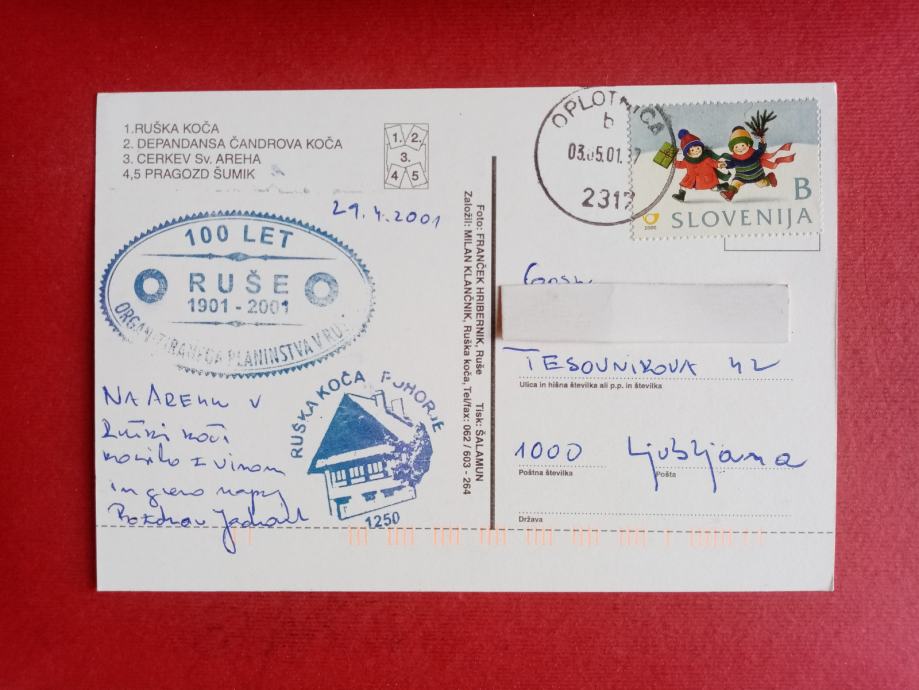 1.RUŠKA KOČA
2. DEPANDANSA ČANDROVA KOČA
3. CERKEV Sv. AREHA
4,5 PRAGOZD ŠUMIK
1. 2.
3.
4 5
29.4.2001
100 LET
RUŠE
1901 - 2001
ORGANIZIRANEGA PLANINSTVA V
RUŠKA KOČA POHORJE
1250
NA AREHU V
Ruški koči
kosilo z vinom
in gremo naprej
Pozdrav
Foto: FRANČEK HRIBERNIK, Ruše Tisk: ŠALAMUN
Založil: MILAN KLANČNIK, Ruška koča, Tel/fax: 062 / 603 - 264
OPLOTNICA
b
03.05.01
2317
B
SLOVENIJA
2000
TESOVNIKOVA 42
Ulica in hišna številka ali p.p. in številka
1000 Ljubljana
Poštna številka Pošta
Država